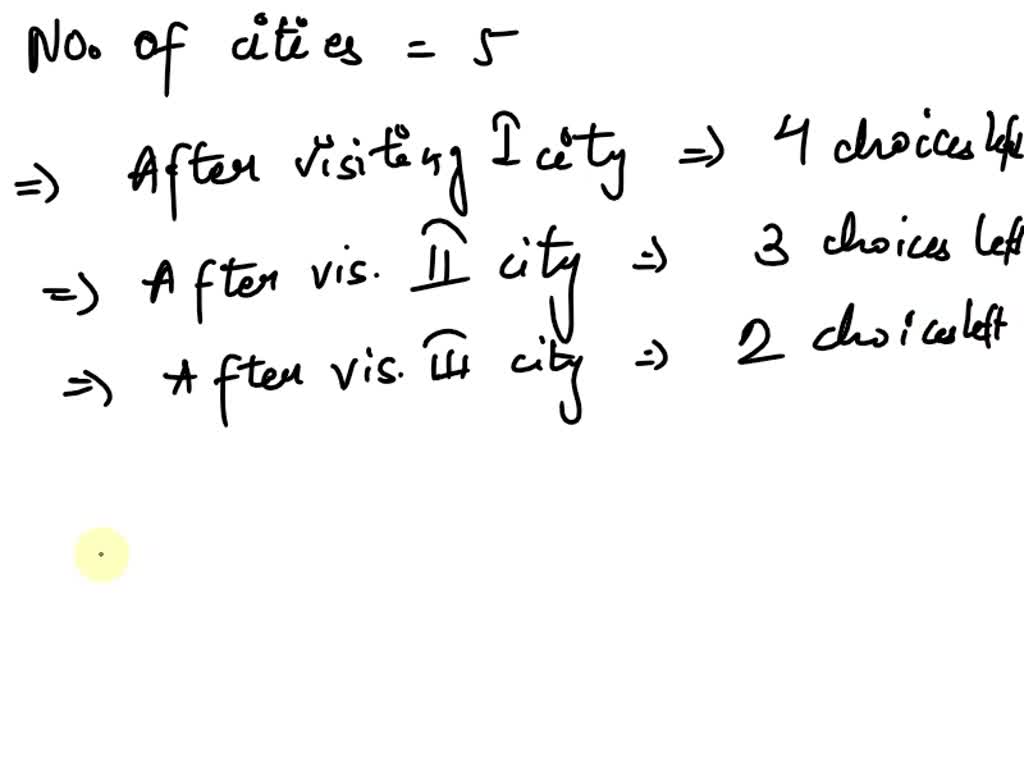 No. of cities = 5
=> After visiting I city => 4 choices left
=> After vis. II city => 3 choices left
=> After vis. III city => 2 choices left